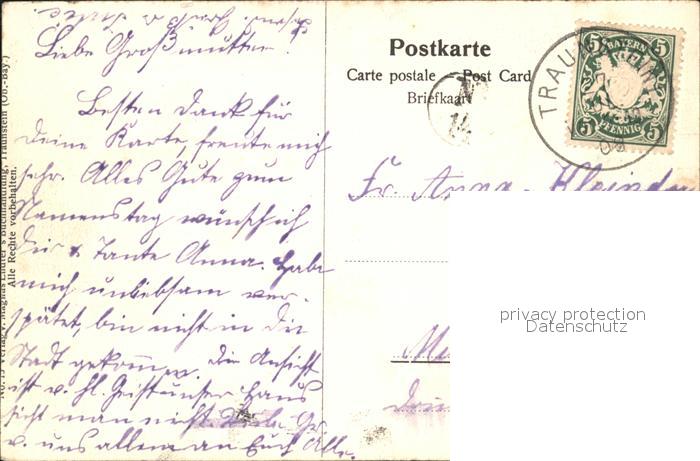 Liebe Großmutter!
Besten Dank für
Deine Karte, freute mich
sehr. Alles Gute zum
Namenstag wünsch ich
Dir & Tante Anna. Habe
mich unliebsam ver-
spätet, bin nicht in die
Stadt gekommen. Die Ansicht
ist v. hl. Geist unser Haus
sieht man nicht. Viele Gr.
v. uns allen an Euch Alle.
No. 15 Verlag v. Magnus Endter's Buchhandlung, Traunstein (Ob.-Bay.)
Alle Rechte vorbehalten.
Postkarte
Carte postale — Post Card
Briefkaart
BAYERN
5 5
PFENNIG
5 5
TRAUNSTEIN
09
Fr. Anna
privacy protection
Datenschutz